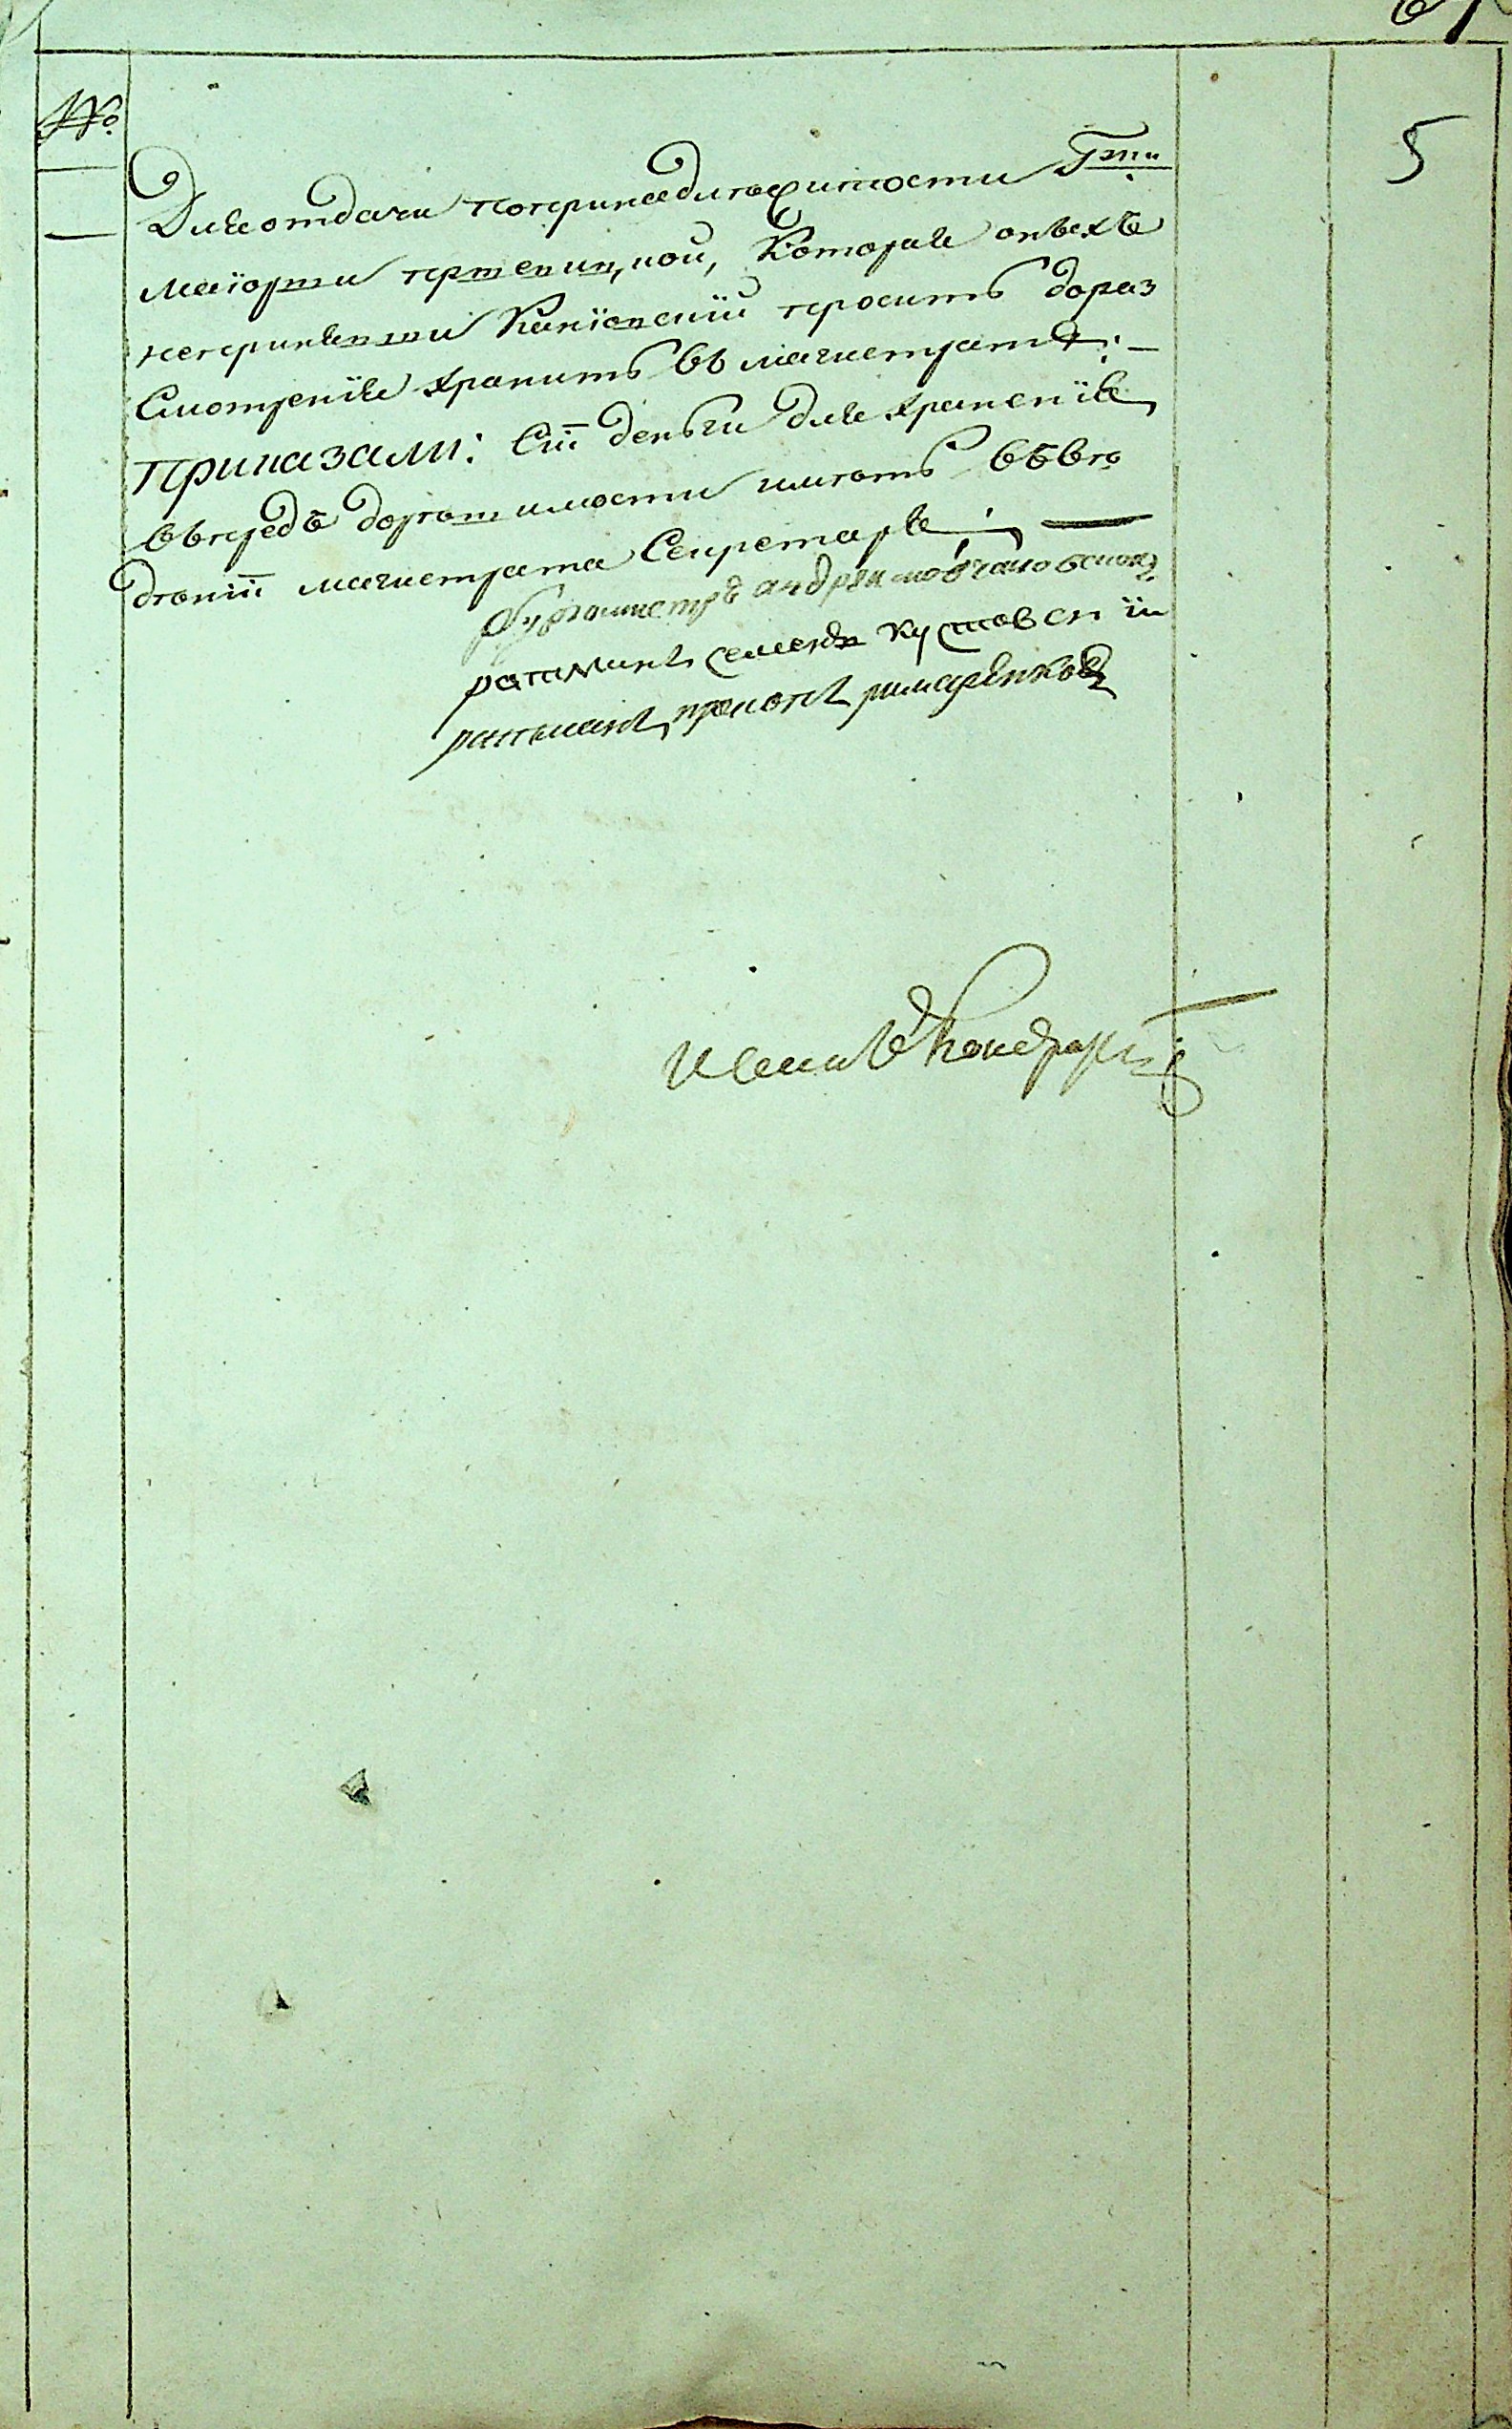 №
5
Для отдачи по принадлежности Гжи
маіорши
непринявши Каніевскій проситъ до раз
смотренія хранить въ магистратѣ:
Приказали: Сіи деньги для храненія
впредь до надобности имѣть въ вѣ
деніи магистрата Секретаря;
бургомистръ андрей мовчановской
ратманъ семенъ кустовскій
ратманъ прокопъ римаренковъ
Иванъ Кондра